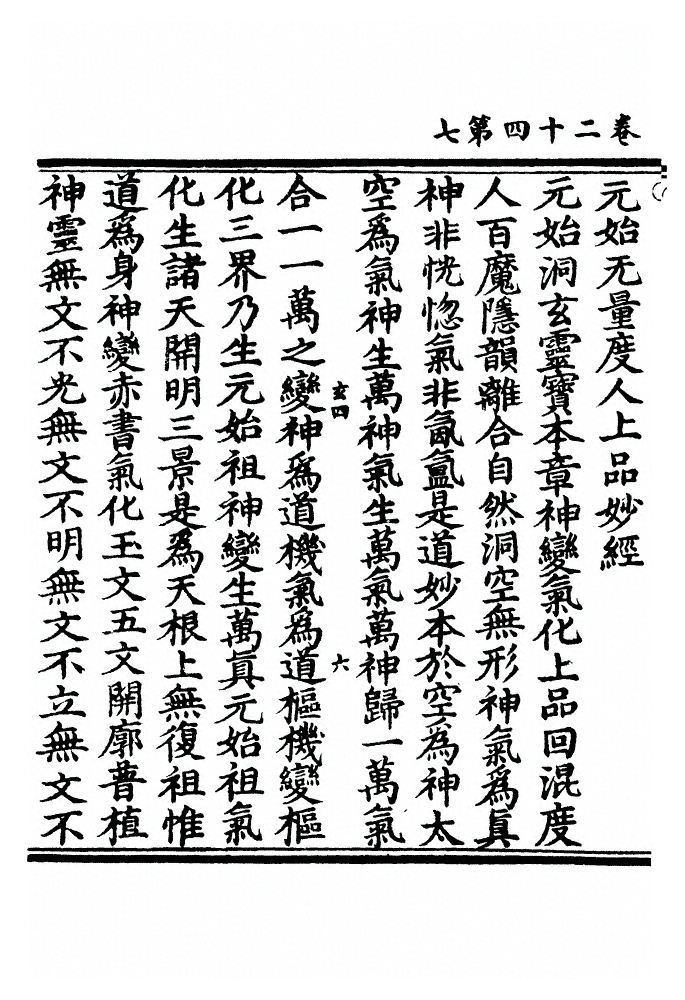 卷二十四第七
元始无量度人上品妙經
元始洞玄靈寶本章神變氣化上品回混度
人百魔隱韻離合自然洞空無形神氣爲眞
神非恍惚氣非氤氳是道妙本於空爲神太
空爲氣神生萬神氣生萬氣萬神歸一萬氣
玄四 六
合一一萬之變神爲道機氣爲道樞機變樞
化三界乃生元始祖神變生萬眞元始祖氣
化生諸天開明三景是爲天根上無復祖惟
道爲身神變赤書氣化玉文五文開廓普植
神靈無文不光無文不明無文不立無文不